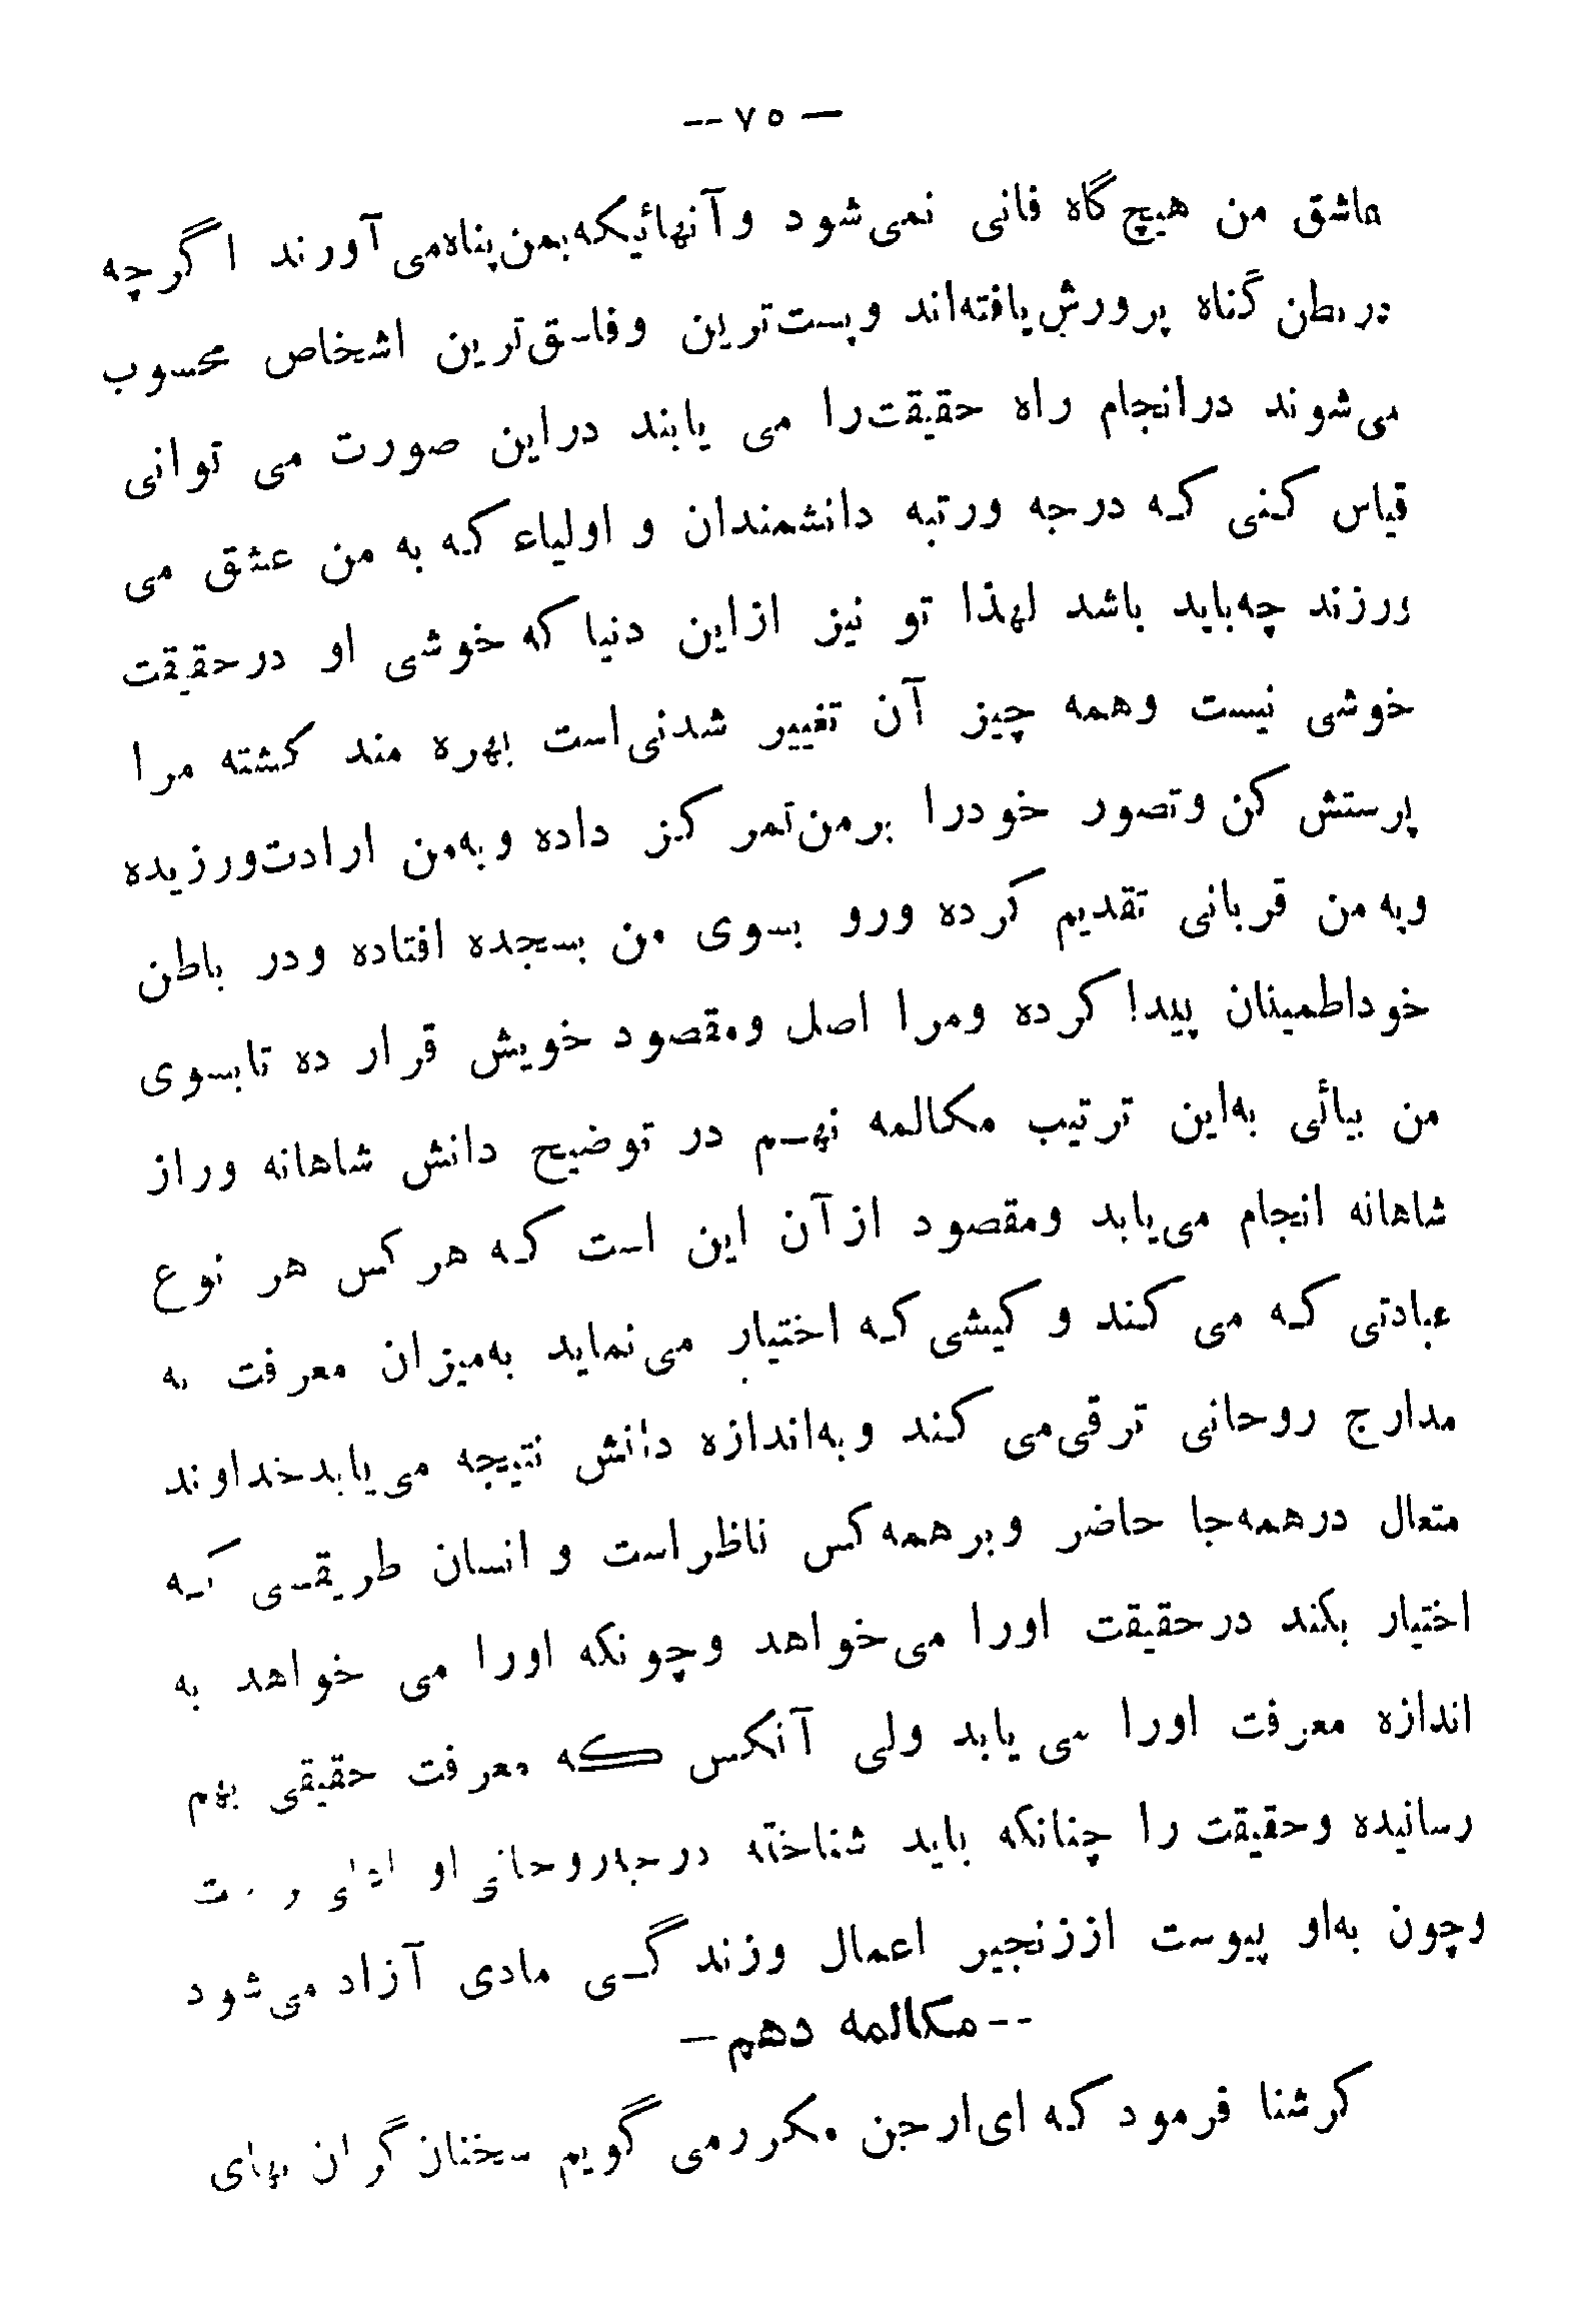 — ٧٥ --
عاشق من هیچ گاه فانی نمی‌شود وآنهائیکه بمن پناه می آورند اگرچه
دربطن گناه پرورش یافته‌اند وپست‌ترین وفاسق‌ترین اشخاص محسوب
می‌شوند درانجام راه حقیقت‌را می یابند دراین صورت می توانی
قیاس کنی که درجه ورتبه دانشمندان و اولیاء که به من عشق می
ورزند چه‌باید باشد لهذا تو نیز ازاین دنیا که خوشی او درحقیقت
خوشی نیست وهمه چیز آن تغییر شدنی‌است بهره مند گشته مرا
پرستش کن وتصور خودرا برمن‌تمر کز داده وبه‌من ارادت‌ورزیده
وبه من قربانی تقدیم کرده ورو بسوی من بسجده افتاده ودر باطن
خوداطمینان پیدا کرده ومرا اصل ومقصود خویش قرار ده تابسوی
من بیائی به‌این ترتیب مکالمه نهـم در توضیح دانش شاهانه وراز
شاهانه انجام می‌یابد ومقصود ازآن این است که هر کس هر نوع
عبادتی که می کند و کیشی که اختیار می‌نماید به‌میزان معرفت به
مدارج روحانی ترقی‌می کند وبه‌اندازه دانش نتیجه می‌یابدخداوند
متعال درهمه‌جا حاضر وبرهمه کس ناظراست و انسان طریقـی که
اختیار بکند درحقیقت اورا می‌خواهد وچونکه اورا می خواهد به
اندازه معرفت اورا می یابد ولی آنکس که معرفت حقیقی بهم
رسانیده وحقیقت را چنانکه باید شناخته درجه‌روحانی او
وچون به‌او پیوست اززنجیر اعمال وزندگـی مادی آزاد می‌شود
--مکالمه دهم—
کرشنا فرمود که ای‌ارجن مکررمی گویم سخنان گران بهای